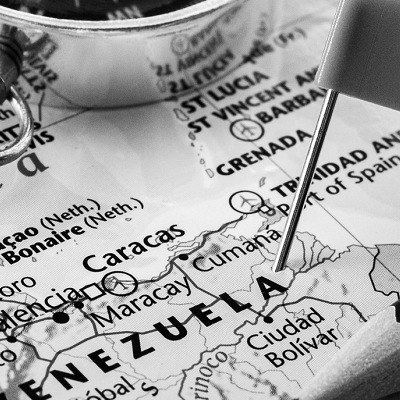 ST LUCIA
ST VINCENT AN
BARBA
GRENADA
TRINIDAD AN
Port of Spain
çao (Neth.)
Bonaire (Neth.)
Caracas
Cumaná
oro
alencia
Maracay
ENEZUELA
Ciudad
Bolívar
rinoco
óbal
S